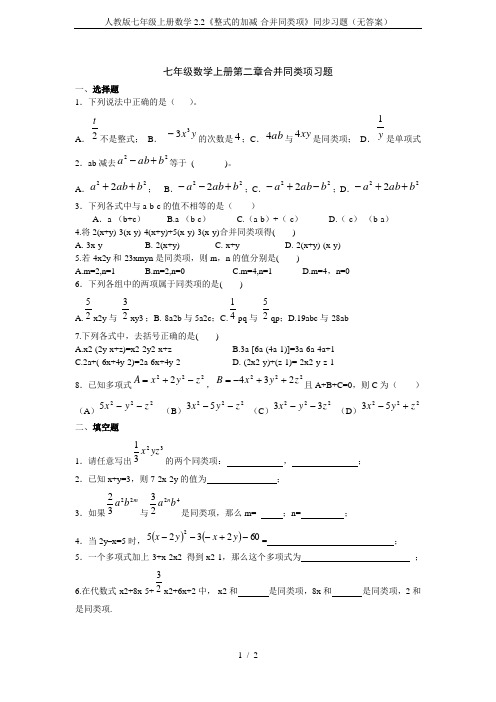 人教版七年级上册数学2.2《整式的加减-合并同类项》同步习题(无答案)
七年级数学上册第二章合并同类项习题
一、选择题
1．下列说法中正确的是（ ）。
A． t/2 不是整式； B． −3x³y 的次数是 4；C．4ab 与 4xy 是同类项； D． 1/y 是单项式
2．ab 减去 a² − ab + b² 等于 ( )。
A．a² + 2ab + b²； B．−a² − 2ab + b²；C．−a² + 2ab − b²；D．−a² + 2ab + b²
3．下列各式中与 a-b-c 的值不相等的是（ ）
A．a-（b+c） B.a-（b-c） C.（a-b）+（-c） D.（-c）-（b-a）
4.将 2(x+y)-3(x-y)-4(x+y)+5(x-y)-3(x-y)合并同类项得( )
A.-3x-y B.-2(x+y) C.-x+y D.-2(x+y)-(x-y)
5.若-4x2y 和-23xmyn 是同类项，则 m，n 的值分别是( )
A.m=2,n=1 B.m=2,n=0 C.m=4,n=1 D.m=4，n=0
6．下列各组中的两项属于同类项的是( )
A. 5/2 x2y 与- 3/2 xy3；B.-8a2b 与 5a2c；C. 1/4 pq 与- 5/2 qp；D.19abc 与-28ab
7.下列各式中，去括号正确的是( )
A.x2-(2y-x+z)=x2-2y2-x+z B.3a-[6a-(4a-1)]=3a-6a-4a+1
C.2a+(-6x+4y-2)=2a-6x+4y-2 D.-(2x2-y)+(z-1)=-2x2-y-z-1
8．已知多项式 A = x² + 2y² − z²，B = −4x² + 3y² + 2z² 且 A+B+C=0，则 C 为（ ）
（A）5x² − y² − z² （B）3x² − 5y² − z² （C）3x² − y² − 3z² （D）3x² − 5y² + z²
二、填空题
1．请任意写出 1/3 x²yz³ 的两个同类项： ， ；
2．已知 x+y=3，则 7-2x-2y 的值为 ；
3．如果 2/3 a²b²ᵐ 与 3/2 a²ⁿb⁴ 是同类项，那么 m= ；n= ；
4．当 2y–x=5 时，5(x − 2y)² − 3(−x + 2y) − 60 = ；
5．一个多项式加上-3+x-2x2 得到 x2-1，那么这个多项式为 ；
6.在代数式-x2+8x-5+ 3/2 x2+6x+2 中，-x2 和 是同类项，8x 和 是同类项，2 和
是同类项.
1 / 2